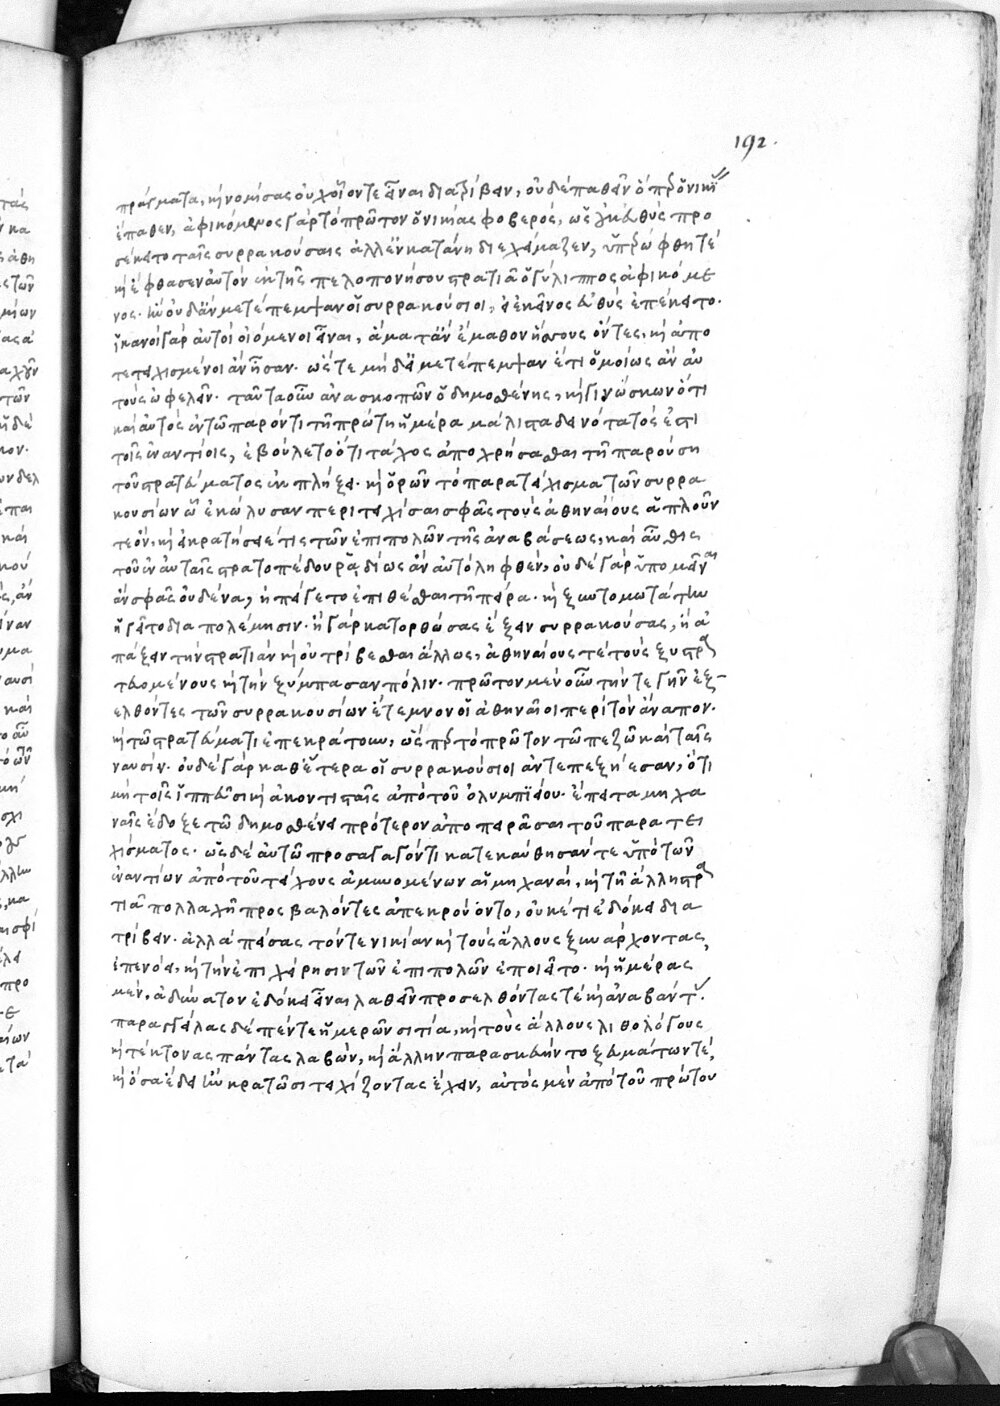 πράγματα, καὶ νομίσας οὐχ οἷόντε εἶναι διατρίβειν, οὐδὲ παθεῖν ὅπερ ὁ νικίας
ἔπαθεν, ἀφικόμενος γὰρ τὸ πρῶτον ὁ νικίας φοβερός, ὡς οὐκ εὐθὺς προ
σέκειτο ταῖς συρρακούσαις ἀλλ' ἐν κατάνη διεχείμαζεν, ὑπερώφθη τέ
καὶ ἔφθασεν αὐτὸν ἐκ τῆς πελοπονήσου στρατιᾶ ὁ γύλιππος ἀφικόμε
νος. ἣν οὐδ' ἂν μετέπεμψαν οἱ συρρακούσιοι, εἰ ἐκεῖνος εὐθὺς ἐπέκειτο.
ἱκανοὶ γὰρ αὐτοὶ οἰόμενοι εἶναι, ἅμα τ' ἂν ἔμαθον ἥσσους ὄντες, καὶ ἀπο
τετειχισμένοι ἂν ἦσαν. ὥστε μὴ δ' εἰ μετέπεμψαν ἔτι ὁμοίως ἂν αὐ
τοὺς ὠφελεῖν. ταῦτα οὖν ἀνασκοπῶν ὁ δημοσθένης, καὶ γινώσκων ὅτι
καὶ αὐτὸς ἐν τῶ παρόντι τῆ πρώτη ἡμέρα μάλιστα δεινότατός ἐστι
τοῖς ἐναντίοις, ἐβούλετο ὅτι τάχος ἀποχρήσασθαι τῆ παρούση
τοῦ στρατεύματος ἐκπλήξει. καὶ ὁρῶν τὸ παρατείχισμα τῶν συρρα
κουσίων ὧ ἐκώλυσαν περιτειχίσαι σφᾶς τοὺς ἀθηναίους ἁπλοῦν
τε ὄν, καὶ εἰ κρατήσειέ τις τῶν ἐπιπολῶν τῆς ἀναβάσεως, καὶ αὖθις
τοῦ ἐν αὐταῖς στρατοπέδου ῥαδίως ἂν αὐτὸ ληφθέν, οὐδὲ γὰρ ὑπομεῖναι
ἂν σφᾶς οὐδένα, ἠπείγετο ἐπιθέσθαι τῆ πείρα. καὶ ξυντομωτάτην
ἡγεῖτο διαπολέμησιν. ἢ γὰρ κατορθώσας ἕξειν συρρακούσας, ἢ ἀ
πάξειν τὴν στρατιὰν καὶ οὐ τρίβεσθαι ἄλλως, ἀθηναίους τὲ τοὺς ξυστρα
τευομένους καὶ τὴν ξύμπασαν πόλιν. πρῶτον μὲν οὖν τήν τε γῆν ἐξ-
ελθόντες τῶν συρρακουσίων ἔτεμνον οἱ ἀθηναῖοι περὶ τὸν ἄναπον.
καὶ τῶ στρατεύματι ἐπεκράτουν, ὥσπερ τὸ πρῶτον τῶ πεζῶ καὶ ταῖς
ναυσίν. οὐδὲ γὰρ καθ' ἕτερα οἱ συρρακούσιοι ἀντεπεξήεσαν, ὅτι
μὴ τοῖς ἱππεῦσι καὶ ἀκοντισταῖς ἀπὸ τοῦ ὀλυμπϊείου. ἔπειτα μηχα
ναῖς ἔδοξε τῶ δημοσθένει πρότερον ἀποπειρᾶσαι τοῦ παρατει
χίσματος. ὡς δὲ αὐτῶ προσαγαγόντι κατεκαύθησάν τε ὑπὸ τῶν
ἐναντίων ἀπὸ τοῦ τείχους ἀμυνομένων αἱ μηχαναί, καὶ τῆ ἄλλη στρα
τιᾶ πολλαχῆ προσβαλόντες ἀπεκρούοντο, οὐκέτι ἐδόκει δια
τρίβειν. ἀλλὰ πείσας τόν τε νικίαν καὶ τοὺς ἄλλους ξυνάρχοντας,
ἐπενόει, καὶ τὴν ἐπιχείρησιν τῶν ἐπιπολῶν ἐποιεῖτο. καὶ ἡμέρας
μὲν, ἀδύνατον ἐδόκει εἶναι λαθεῖν προσελθόντας τὲ καὶ ἀναβάντας.
παραγγείλας δὲ πέντε ἡμερῶν σιτία, καὶ τοὺς ἄλλους λιθολόγους
καὶ τέκτονας πάντας λαβὼν, καὶ ἄλλην παρασκευὴν τοξευμάτων τέ,
καὶ ὅσα ἔδει ἢν κρατῶσι τειχίζοντας ἔχειν, αὐτὸς μὲν ἀπὸ τοῦ πρώτου
192.